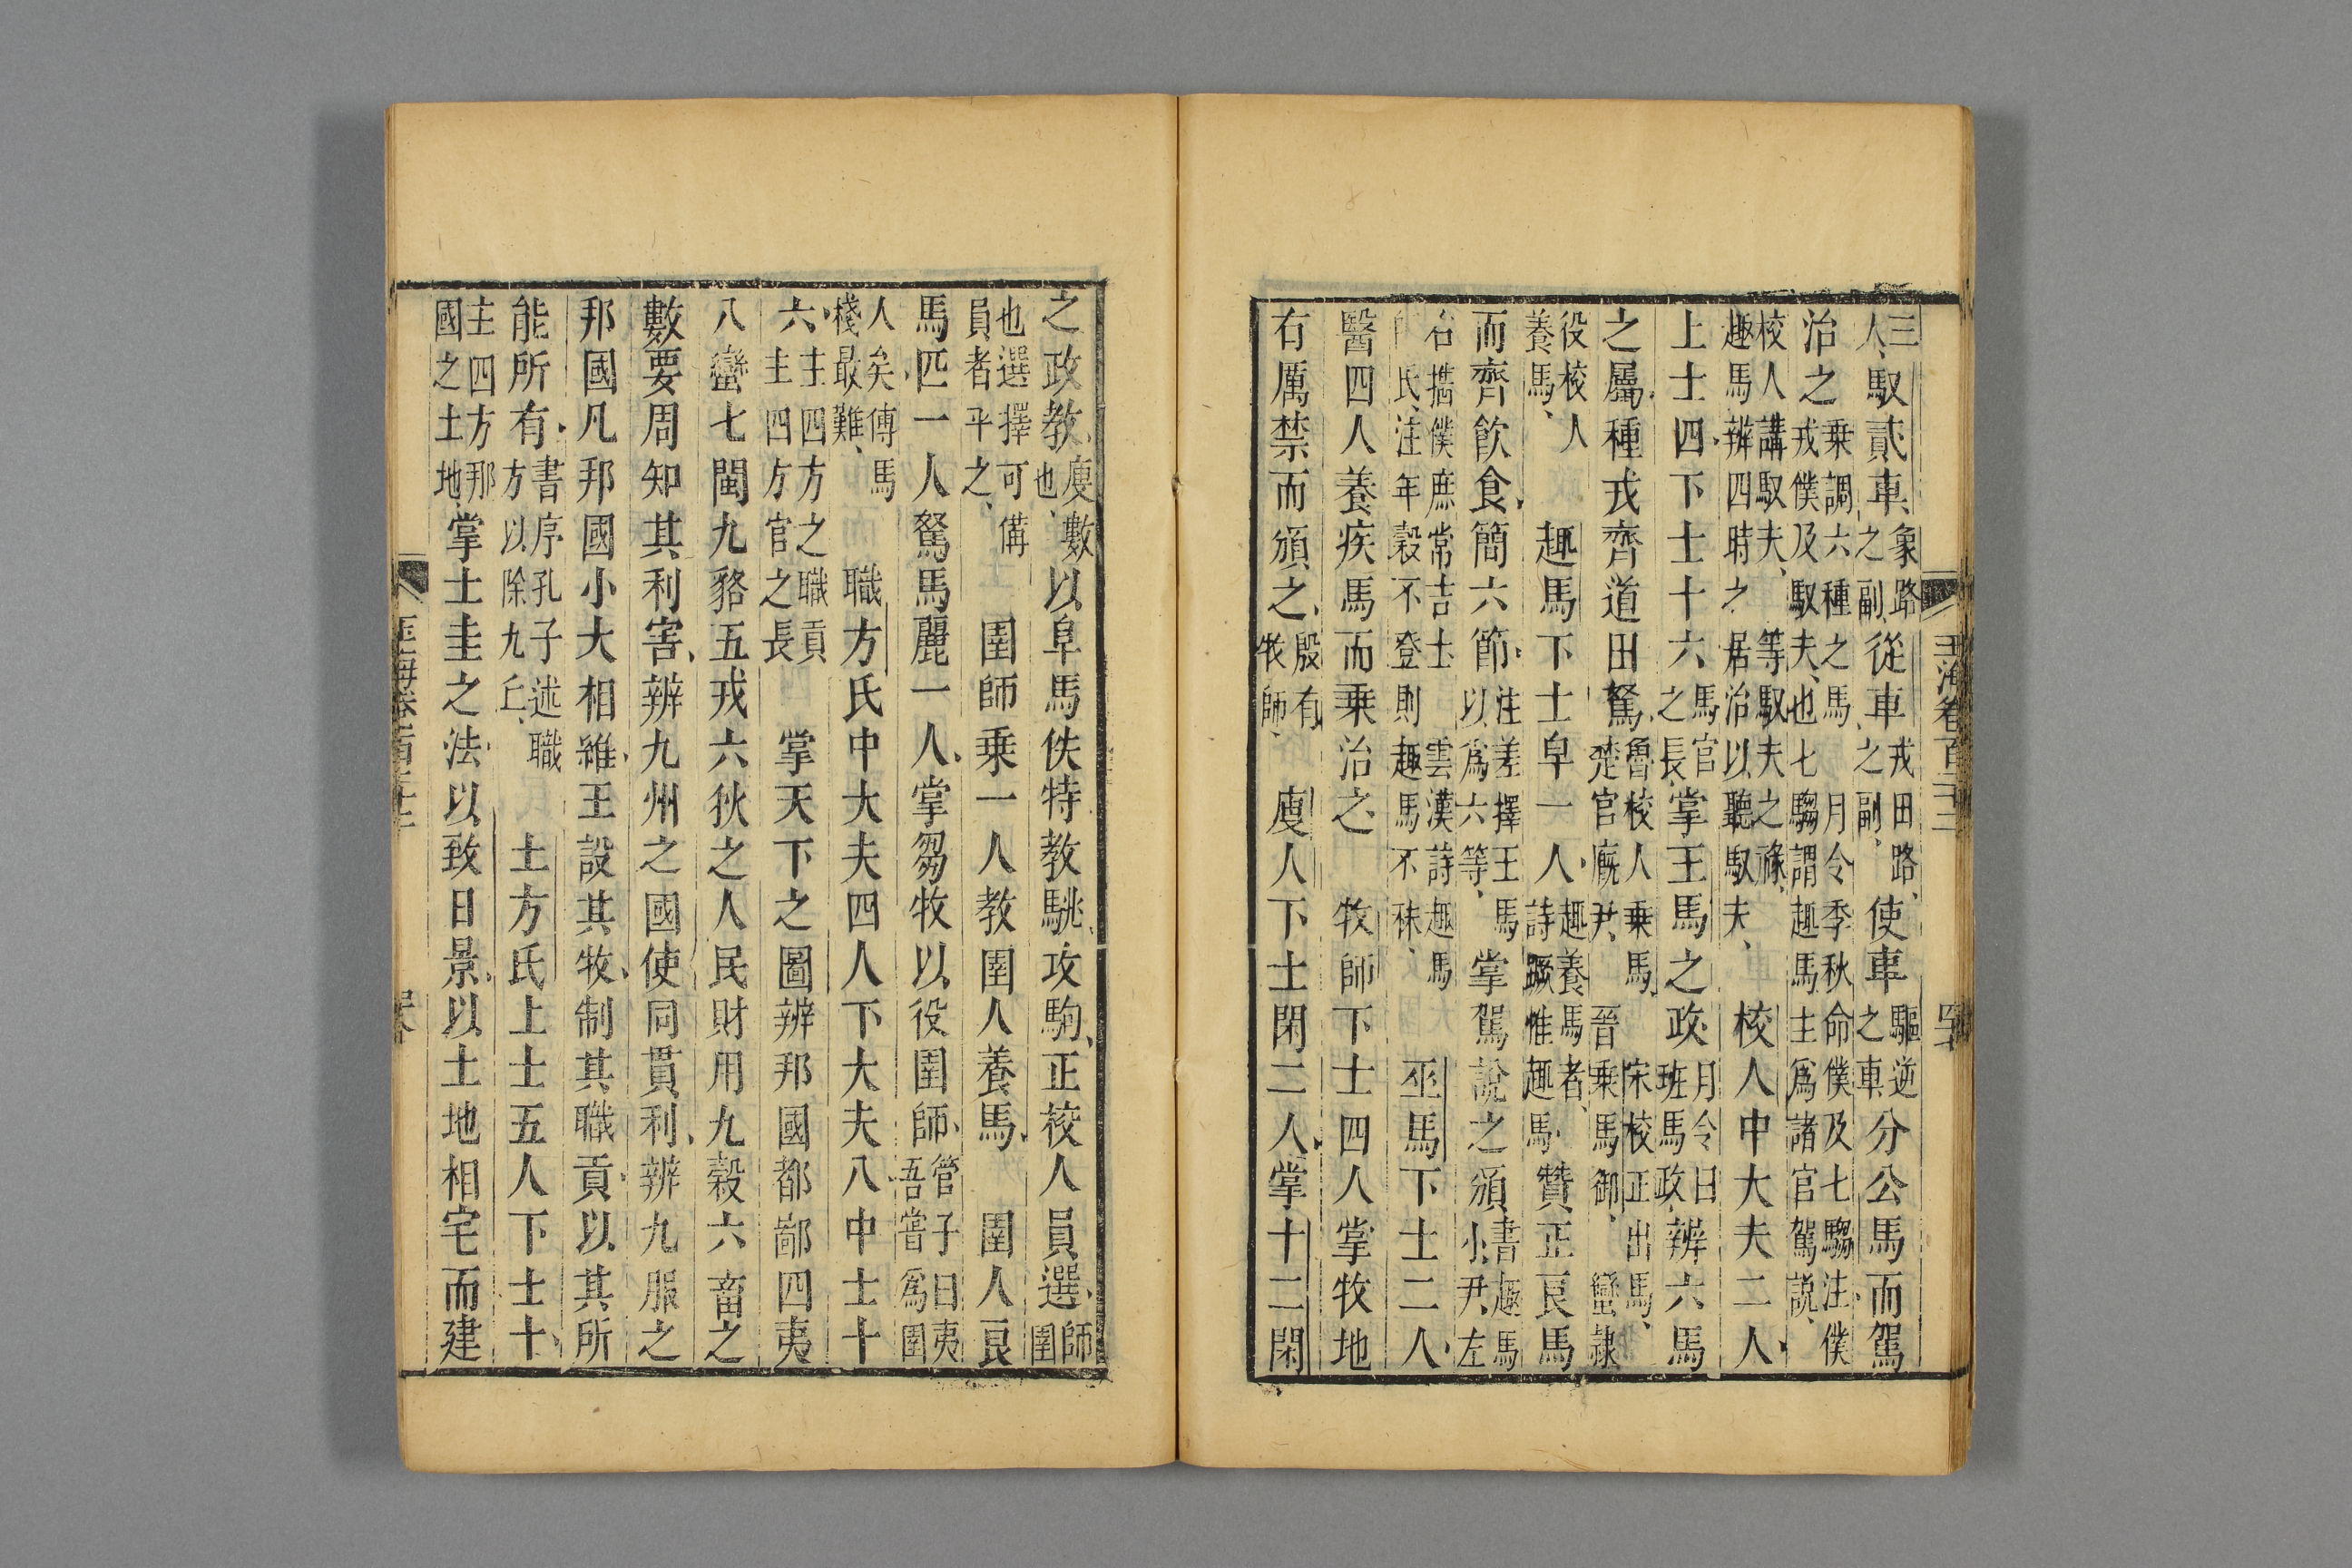 三人馭貳車象路之副從車戎田路之副使車驅逆之車分公馬而駕
治之乗調六種之馬月令季秋命僕及七騶注僕戎僕及馭夫也七騶謂趣馬主爲諸官駕說
校人講馭夫等馭夫之祿趣馬辨四時之居治以聽馭夫校人中大夫二人
上士四下士十六馬官之長掌王馬之政月令曰班馬政辨六馬
之屬種戎齊道田駑魯校人乗馬宋校正出馬楚官廐尹晉乗馬御蠻隷
役校人養馬趣馬下士皁一人趣養馬者詩蹶惟趣馬贊正良馬
而齊飲食簡六節注差擇王馬以爲六等掌駕說之頒書趣馬小尹左
右攜僕庶常吉士雲漢詩趣馬師氏注年穀不登則趣馬不秣巫馬下士二人
醫四人養疾馬而乗治之牧師下士四人掌牧地
右厲禁而頒之殷有牧師廋人下士閑二人掌十二閑
玉海卷百二十三
之政教廋數也以阜馬佚特教駣攻駒正校人員選師圉
也選擇可備員者平之圉師乗一人教圉人養馬圉人良
馬匹一人駑馬麗一人掌芻牧以役圉師管子曰夷吾嘗爲圉
人矣傅馬棧最難職方氏中大夫四人下大夫八中士十
六主四方之職貢主四方官之長掌天下之圖辨邦國都鄙四夷
八蠻七閩九貉五戎六狄之人民財用九穀六畜之
數要周知其利害辨九州之國使同貫利辨九服之
邦國凡邦國小大相維王設其牧制其職貢以其所
能所有書序孔子述職方以除九丘土方氏上士五人下士十
主四方那國之土地掌土圭之法以致日景以土地相宅而建